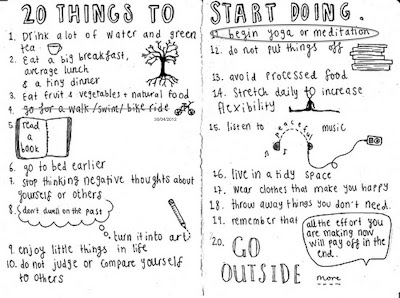 20 THINGS TO START DOING.
1. Drink alot of water and green
tea
2. Eat a big breakfast,
average lunch
& a tiny dinner
3. Eat fruit & vegetables + natural food
4. go for a walk/swim/bike ride
30/04/2012
5. read
a
book
6. go to bed earlier
7. stop thinking negative thoughts about
yourself or others
8. don't dwell on the past
turn it into art
9. enjoy little things in life
10. do not judge or compare yourself
to others
11. begin yoga or meditation
12. do not put things off
13. avoid processed food
14. Stretch daily to increase
flexibility
15. listen to peaceful music
16. live in a tidy space
17. wear clothes that make you happy
18. throw away things you don't need.
19. remember that
all the effort you
are making now
will pay off in the
end.
20. GO
OUTSIDE more